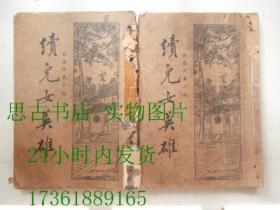 續兒女英雄
續兒女英雄
思古书店 实物图片
24小时内发货
17361889165